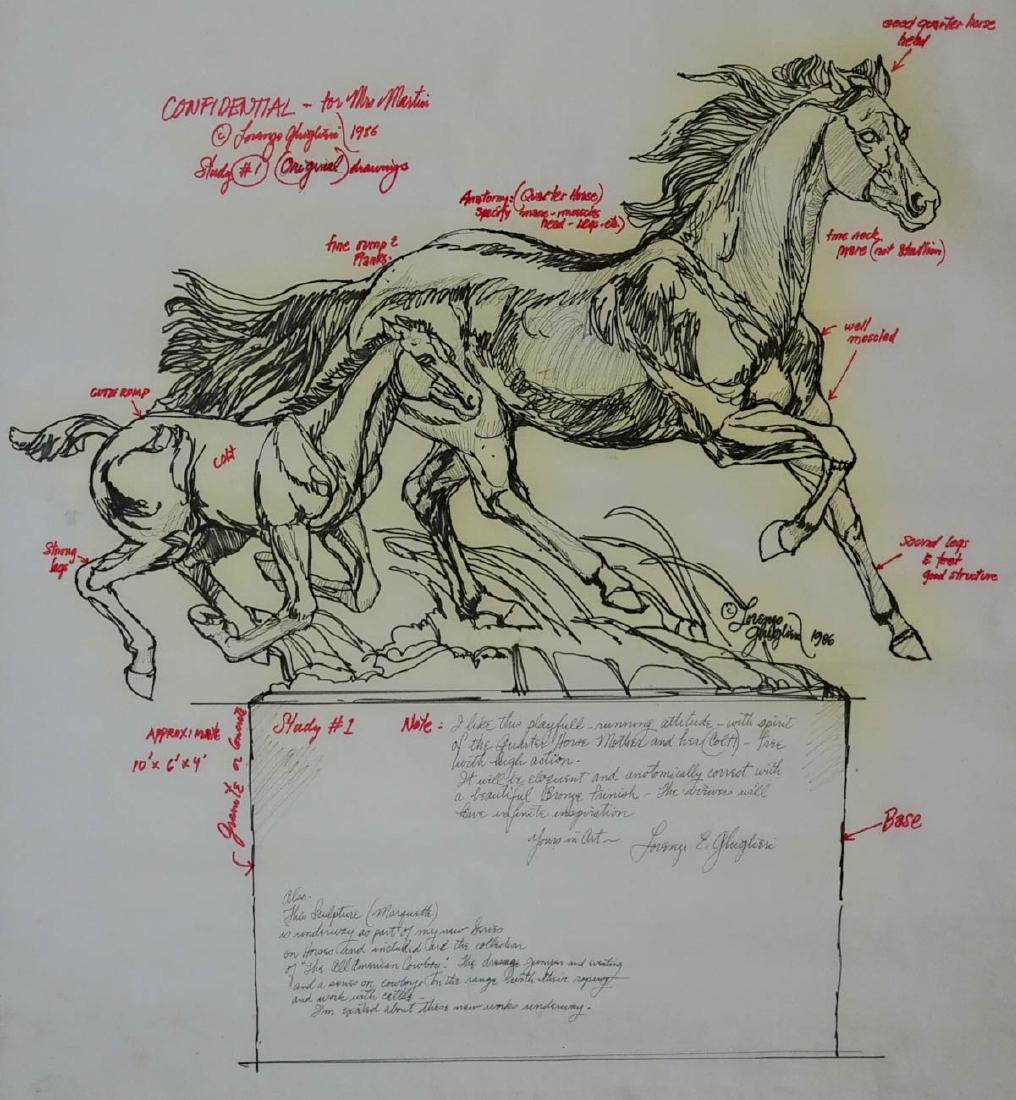 good quarter horse
head
CONFIDENTIAL - for Mrs Martin
© Lorenzo Ghiglieri 1986
Study #1 (Original) drawings
Anatomy: (Quarter Horse)
Specify mane - muscles
head - legs - etc)
fine rump &
flanks.
fine neck
mare (not stallion)
well
muscled
CUTE RUMP
colt
Strong
legs
sound legs
& feet
good structure
© Lorenzo
Ghiglieri 1986
APPROXIMATE
10' x 6' x 4'
Granite or
Study #1
Note: I like this playfull - running attitude - with spirit
of the Quarter Horse Mother and her (Colt) - Free
with high action.
It will be eloquent and anatomically correct with
a beautiful Bronze Finish - The viewers will
have infinite inspiration
Yours in Art - Lorenzo E. Ghiglieri
Base
Also -
This Sculpture (Marquette)
is underway as part of my new Series
on Horses and included are the collection
of "The All American Cowboy." The jumper and
and a series on cowboys on the range with their roping
and work with cattle -
I'm excited about these new works underway.